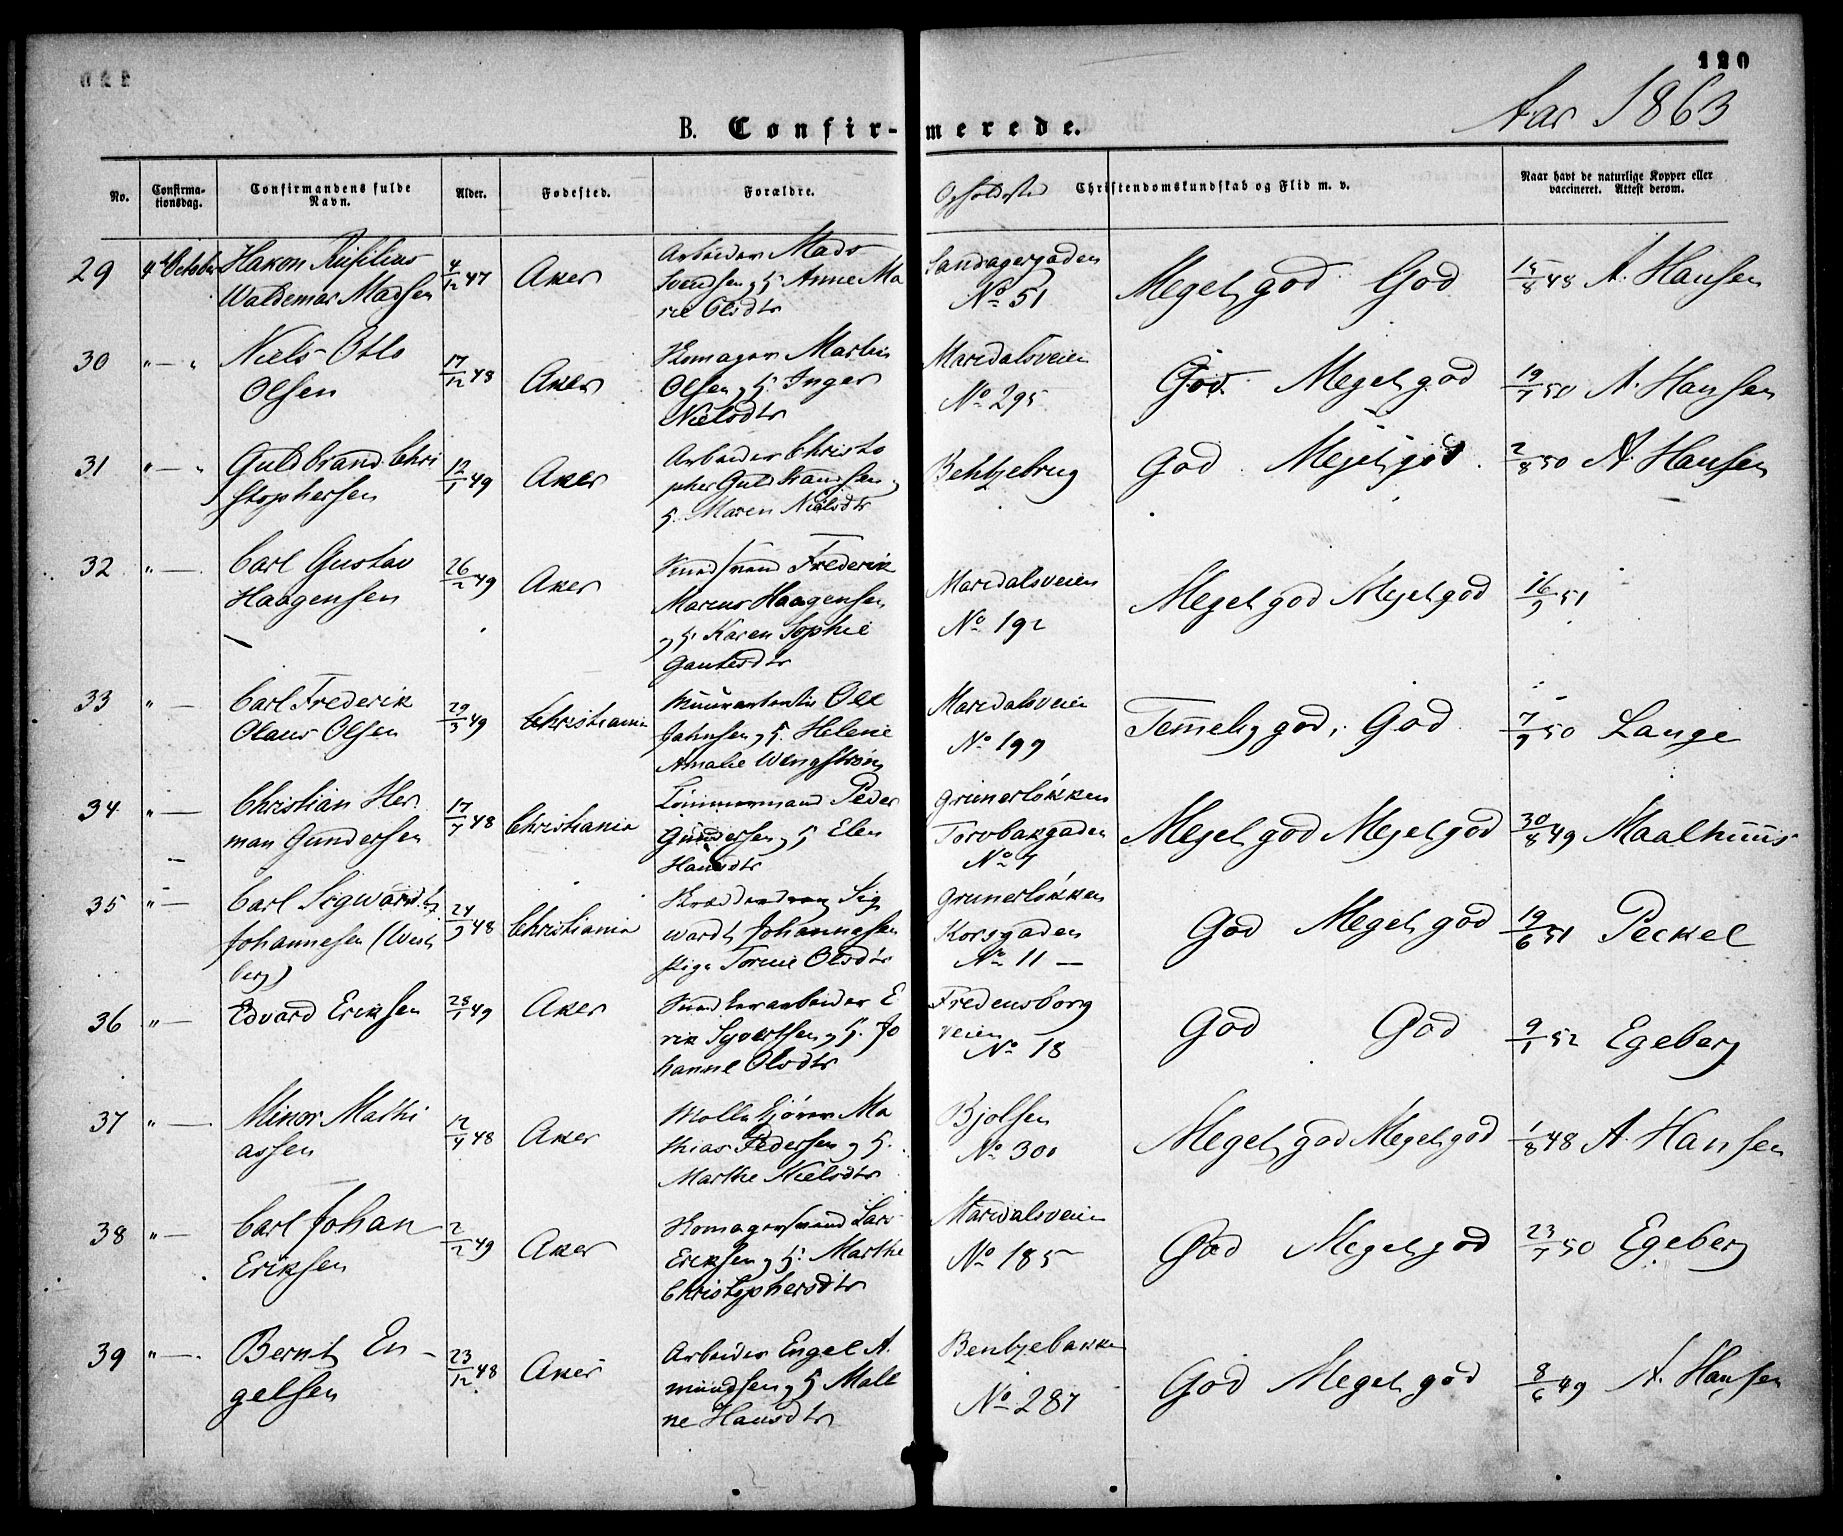 120
Aar 1863
B. Confirmerede.
No. Confirmationsdag. Confirmandens fulde Navn. Alder. Fødested. Forældre. Opholdsted Christendomskundskab og Flid m. v. Naar havt de naturlige Kopper eller vaccineret. Attest derom.
29 4de October Hakon
Waldemar Madsen
4/12 47 Aker
Arbeider Mads
Svendsen og H. Anne Ma
rie Olsdtr
Sandagergaden
No 51
Meget god God
15/8 48 A. Hansen
30 " — " Niels Otto
Olsen
17/12 48 Aker
Skomager Martin
Olsen og H. Inger
Nielsdtr
Maridalsveien
No 295
God. Meget god
19/7 50 A. Hansen
31 " — " Guldbrand Chri
stophersen
12/1 49 Aker
Arbeider Christo
pher Guldbrandsen og
H. Maren Nielsdtr
Bentzebrug
God Meget god
2/8 50 A. Hansen
32 " — Carl Gustav
Haagensen
26/2 49 Aker
Frederik
Marcus Haagensen
og H. Karen Sophie
Gautesdtr
Maridalsveien
No 192
Meget god Meget god
16/9 51
33 " — Carl Frederik
Olaus Olsen
29/3 49 Christiania
Ole
Johnsen og H. Helene
Amalie Wengstrøm
Maridalsveien
No 199
Temmelig god, God
7/9 50 Lange
34 " — Christian Her
man Gundersen
17/7 48 Christiania
Tømmermand Peder
Gundersen og H Elen
Hansdtr
Grünerløkken
Torvbakgaden
No 7
Meget god Meget god
30/8 49 Maalhuus
35 " — Carl Sigwardt
Johannesen (West
berg)
24/9 48 Christiania
Sig
wardt Johannesen
Pige Torine Olsdtr
Grünerløkken
Korsgaden
No 11 —
God Meget god
19/6 51 Peckel
36 " — Edvard Eriksen
28/1 49 Aker
E
rik Syvertsen og H. Jo
hanne Olsdtr
Fredensborg
veien
No 18
God God
9/1 52 Egeberg
37 " — Minor Mathi
assen
12/4 48 Aker
Ma
thias Pedersen og H.
Marthe Nielsdtr
Bjølsen
No 300
Meget god Meget god
1/8 48 A. Hansen
38 " — Carl Johan
Eriksen
2/2 49 Aker
Skomagersvend Lars
Eriksen og H. Marthe
Christophersdtr
Maridalsveien
No 185
God Meget god
23/7 50 Egeberg
39 " — Bernt En-
gelsen
23/12 48 Aker
Arbeider Engel A.
mundsen og H Mall
ne Hansdtr
Bentzebakken
No 287
God Meget god
8/6 49 A. Hansen